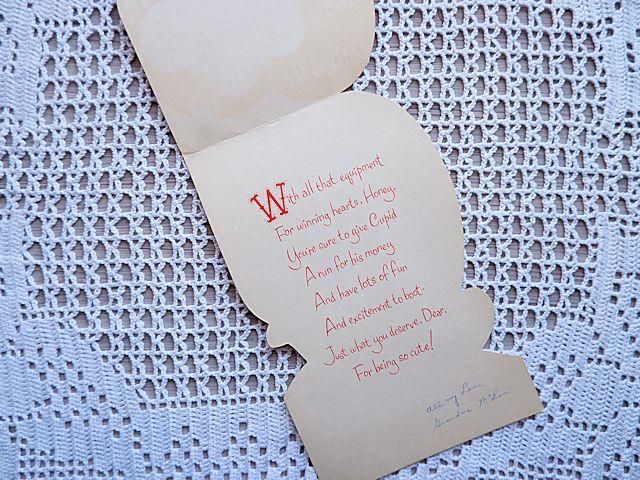 With all that equipment
For winning hearts, Honey,
You're sure to give Cupid
A run for his money
And have lots of fun
And excitement to boot-
Just what you deserve, Dear,
For being so cute!
All my Love